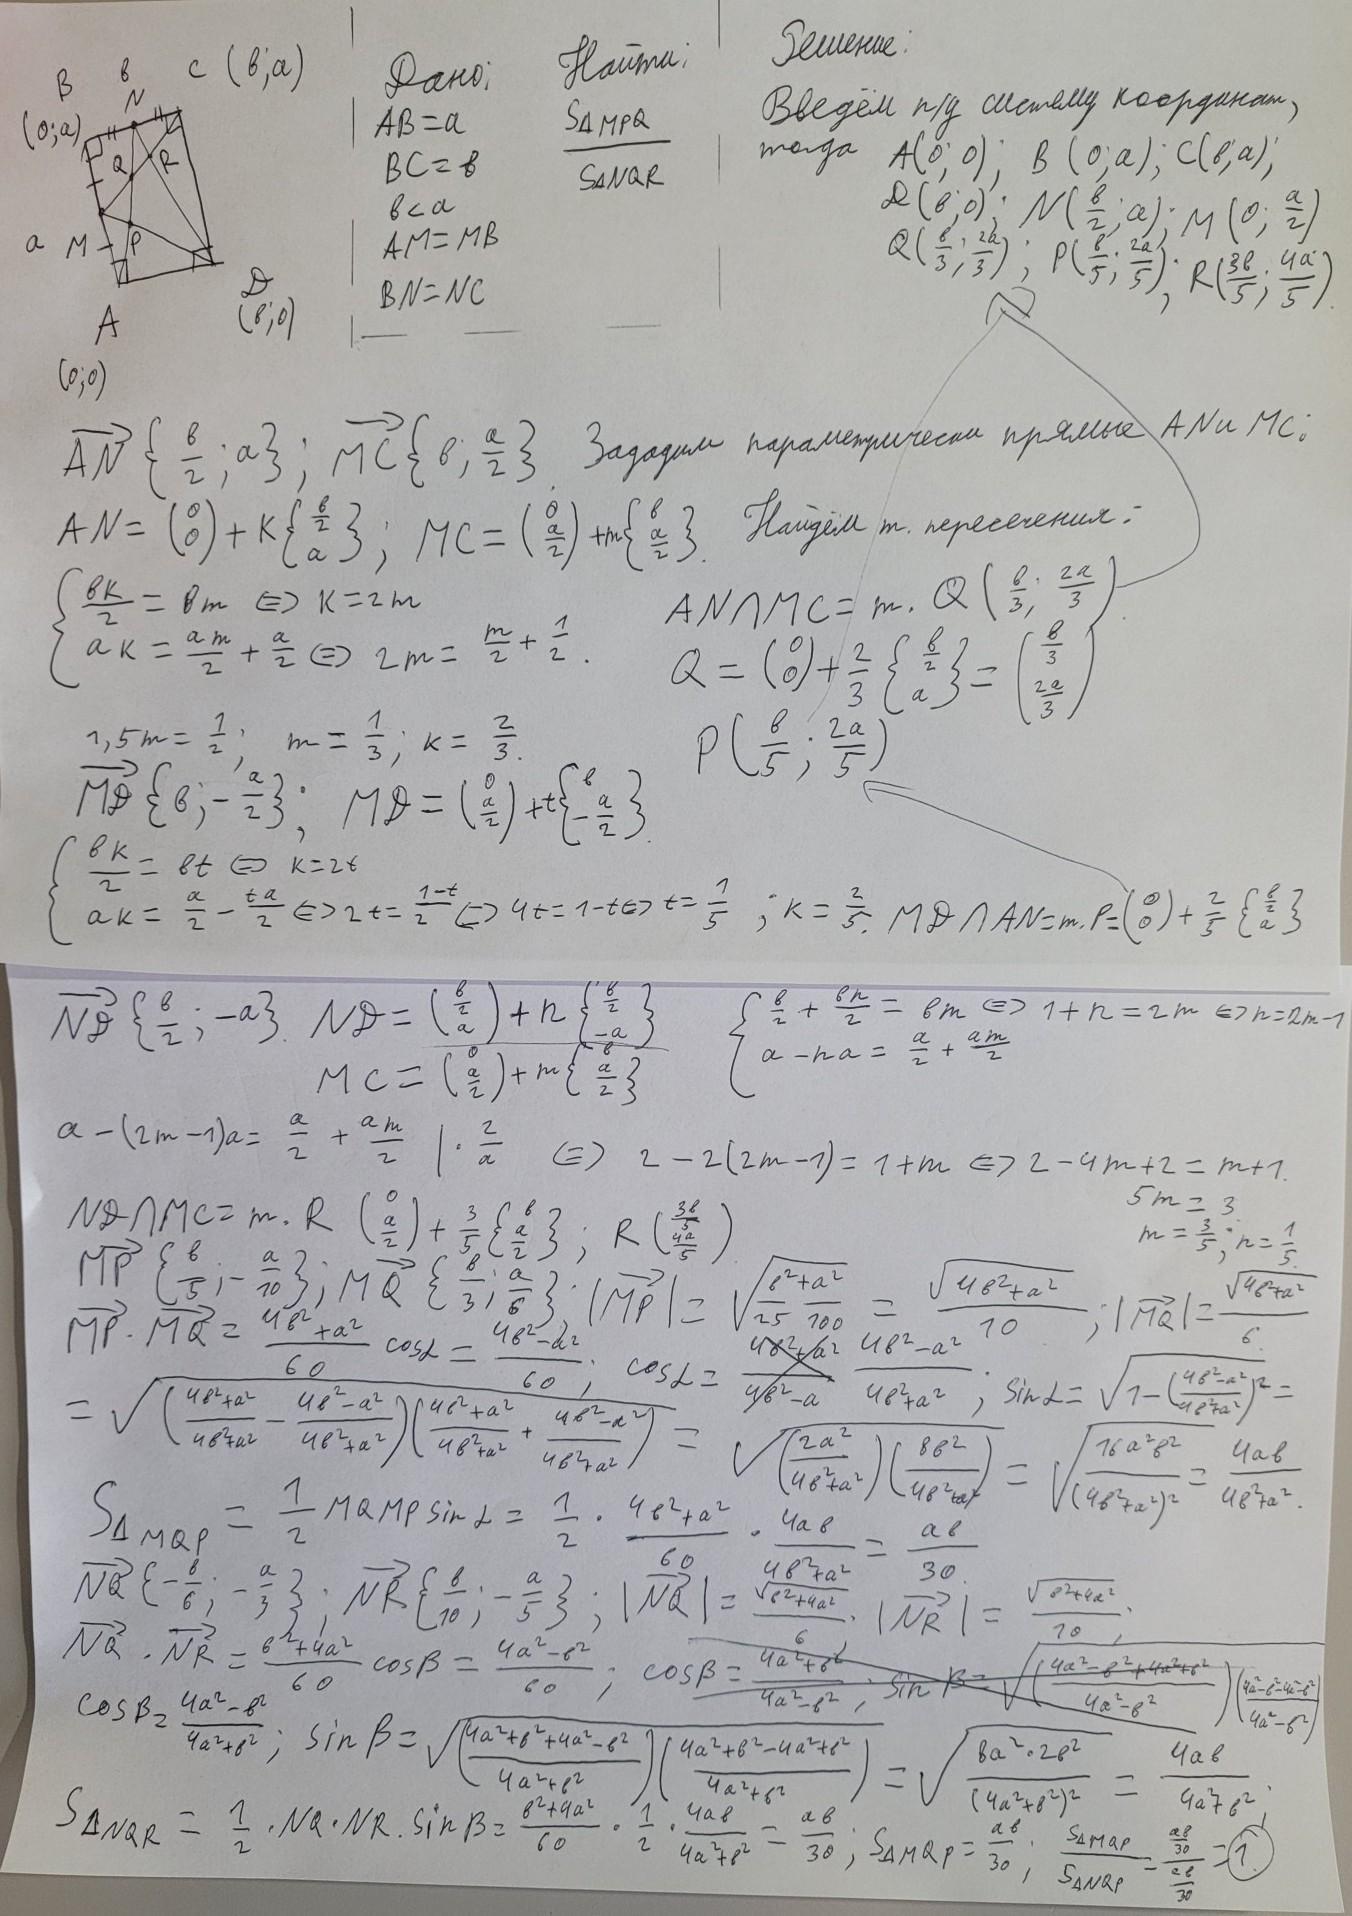 B в N C (в;a)
(0;a)
Q R
a M P
D
(в;0)
A
(0;0)
Дано:
AB=a
BC=в
в<a
AM=MB
BN=NC
Найти:
S△MPQ
S△NQR
Решение:
Введём п/д систему координат,
тогда A(0;0); B(0;a); C(в;a);
D(в;0); N(в/2;a); M(0;a/2)
Q(в/3;2a/3); P(в/5;2a/5); R(3в/5;4a/5).
AN{в/2;a}; MC{в;a/2}. Зададим параметрически прямые AN и MC:
AN=(0 0)+K{в/2 a}; MC=(0 a/2)+m{в a/2}. Найдём т. пересечения:
{вк/2=вm ⇔ K=2m
aк=am/2+a/2 ⇔ 2m=m/2+1/2.
AN∩MC=т. Q(в/3;2a/3)
Q=(0 0)+2/3{в/2 a}=(в/3 2a/3)
1,5m=1/2; m=1/3; к=2/3.
P(в/5;2a/5)
MD{в;-a/2}; MD=(0 a/2)+t{в -a/2}.
{вк/2=вt ⇔ к=2t
aк=a/2-ta/2 ⇔ 2t=1-t/2 ⇔ 4t=1-t ⇔ t=1/5; к=2/5. MD∩AN=т.P=(0 0)+2/5{в/2 a}
ND{в/2;-a}. ND=(в/2 a)+n{в/2 -a}
MC=(0 a/2)+m{в a/2}
{в/2+вn/2=вm ⇔ 1+n=2m ⇔ n=2m-1
a-na=a/2+am/2
a-(2m-1)a=a/2+am/2 |·2/a ⇔ 2-2(2m-1)=1+m ⇔ 2-4m+2=m+1.
5m=3
m=3/5; n=1/5.
ND∩MC=т. R (0 a/2)+3/5{в a/2}; R(3в/5 4a/5)
MP{в/5;-a/10}; MQ{в/3;a/6}; |MP|=√(в²/25+a²/100)=√(4в²+a²)/10; |MQ|=√(4в²+a²)/6.
MP·MQ=4в²+a²/60 cosα=4в²-a²/60; cosα=4в²-a²/4в²+a²; sinα=√(1-(4в²-a²/4в²+a²)²)=
=√((4в²+a²/4в²+a²-4в²-a²/4в²+a²)(4в²+a²/4в²+a²+4в²-a²/4в²+a²))=√((2a²/4в²+a²)(8в²/4в²+a²))=√(16a²в²/(4в²+a²)²)=4aв/4в²+a².
S△MQP=1/2 MQ MP sinα=1/2·4в²+a²/60·4aв/4в²+a²=aв/30.
NQ{-в/6;-a/3}; NR{в/10;-a/5}; |NQ|=√(в²+4a²)/6; |NR|=√(в²+4a²)/10;
NQ·NR=в²+4a²/60 cosβ=4a²-в²/60; cosβ=4a²+в²/4a²-в²; sinβ=√((4a²-в²+4a²+в²/4a²-в²)(4a²-в²-4a²-в²/4a²-в²))
cosβ=4a²-в²/4a²+в²; sinβ=√((4a²+в²+4a²-в²/4a²+в²)(4a²+в²-4a²+в²/4a²+в²))=√(8a²·2в²/(4a²+в²)²)=4aв/4a²+в²;
S△NQR=1/2·NQ·NR·sinβ=в²+4a²/60·1/2·4aв/4a²+в²=aв/30; S△MQP=aв/30; S△MQP/S△NQP=aв/30/aв/30=1.